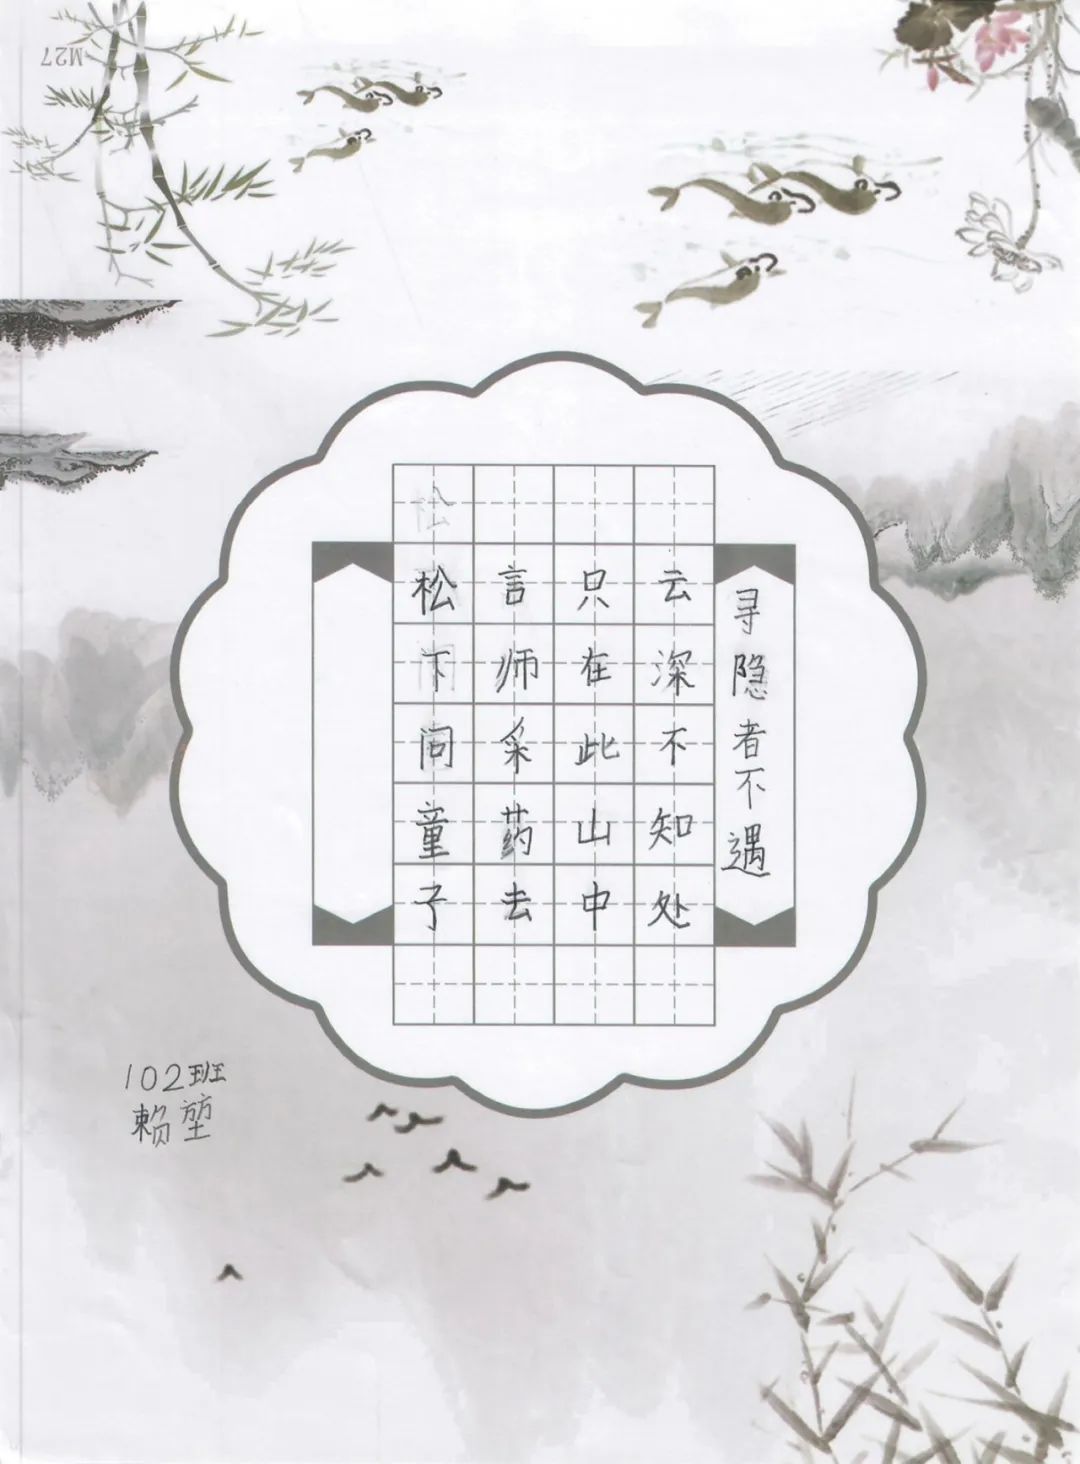 寻隐者不遇
松下问童子
言师采药去
只在此山中
云深不知处
102班
赖堃
M27